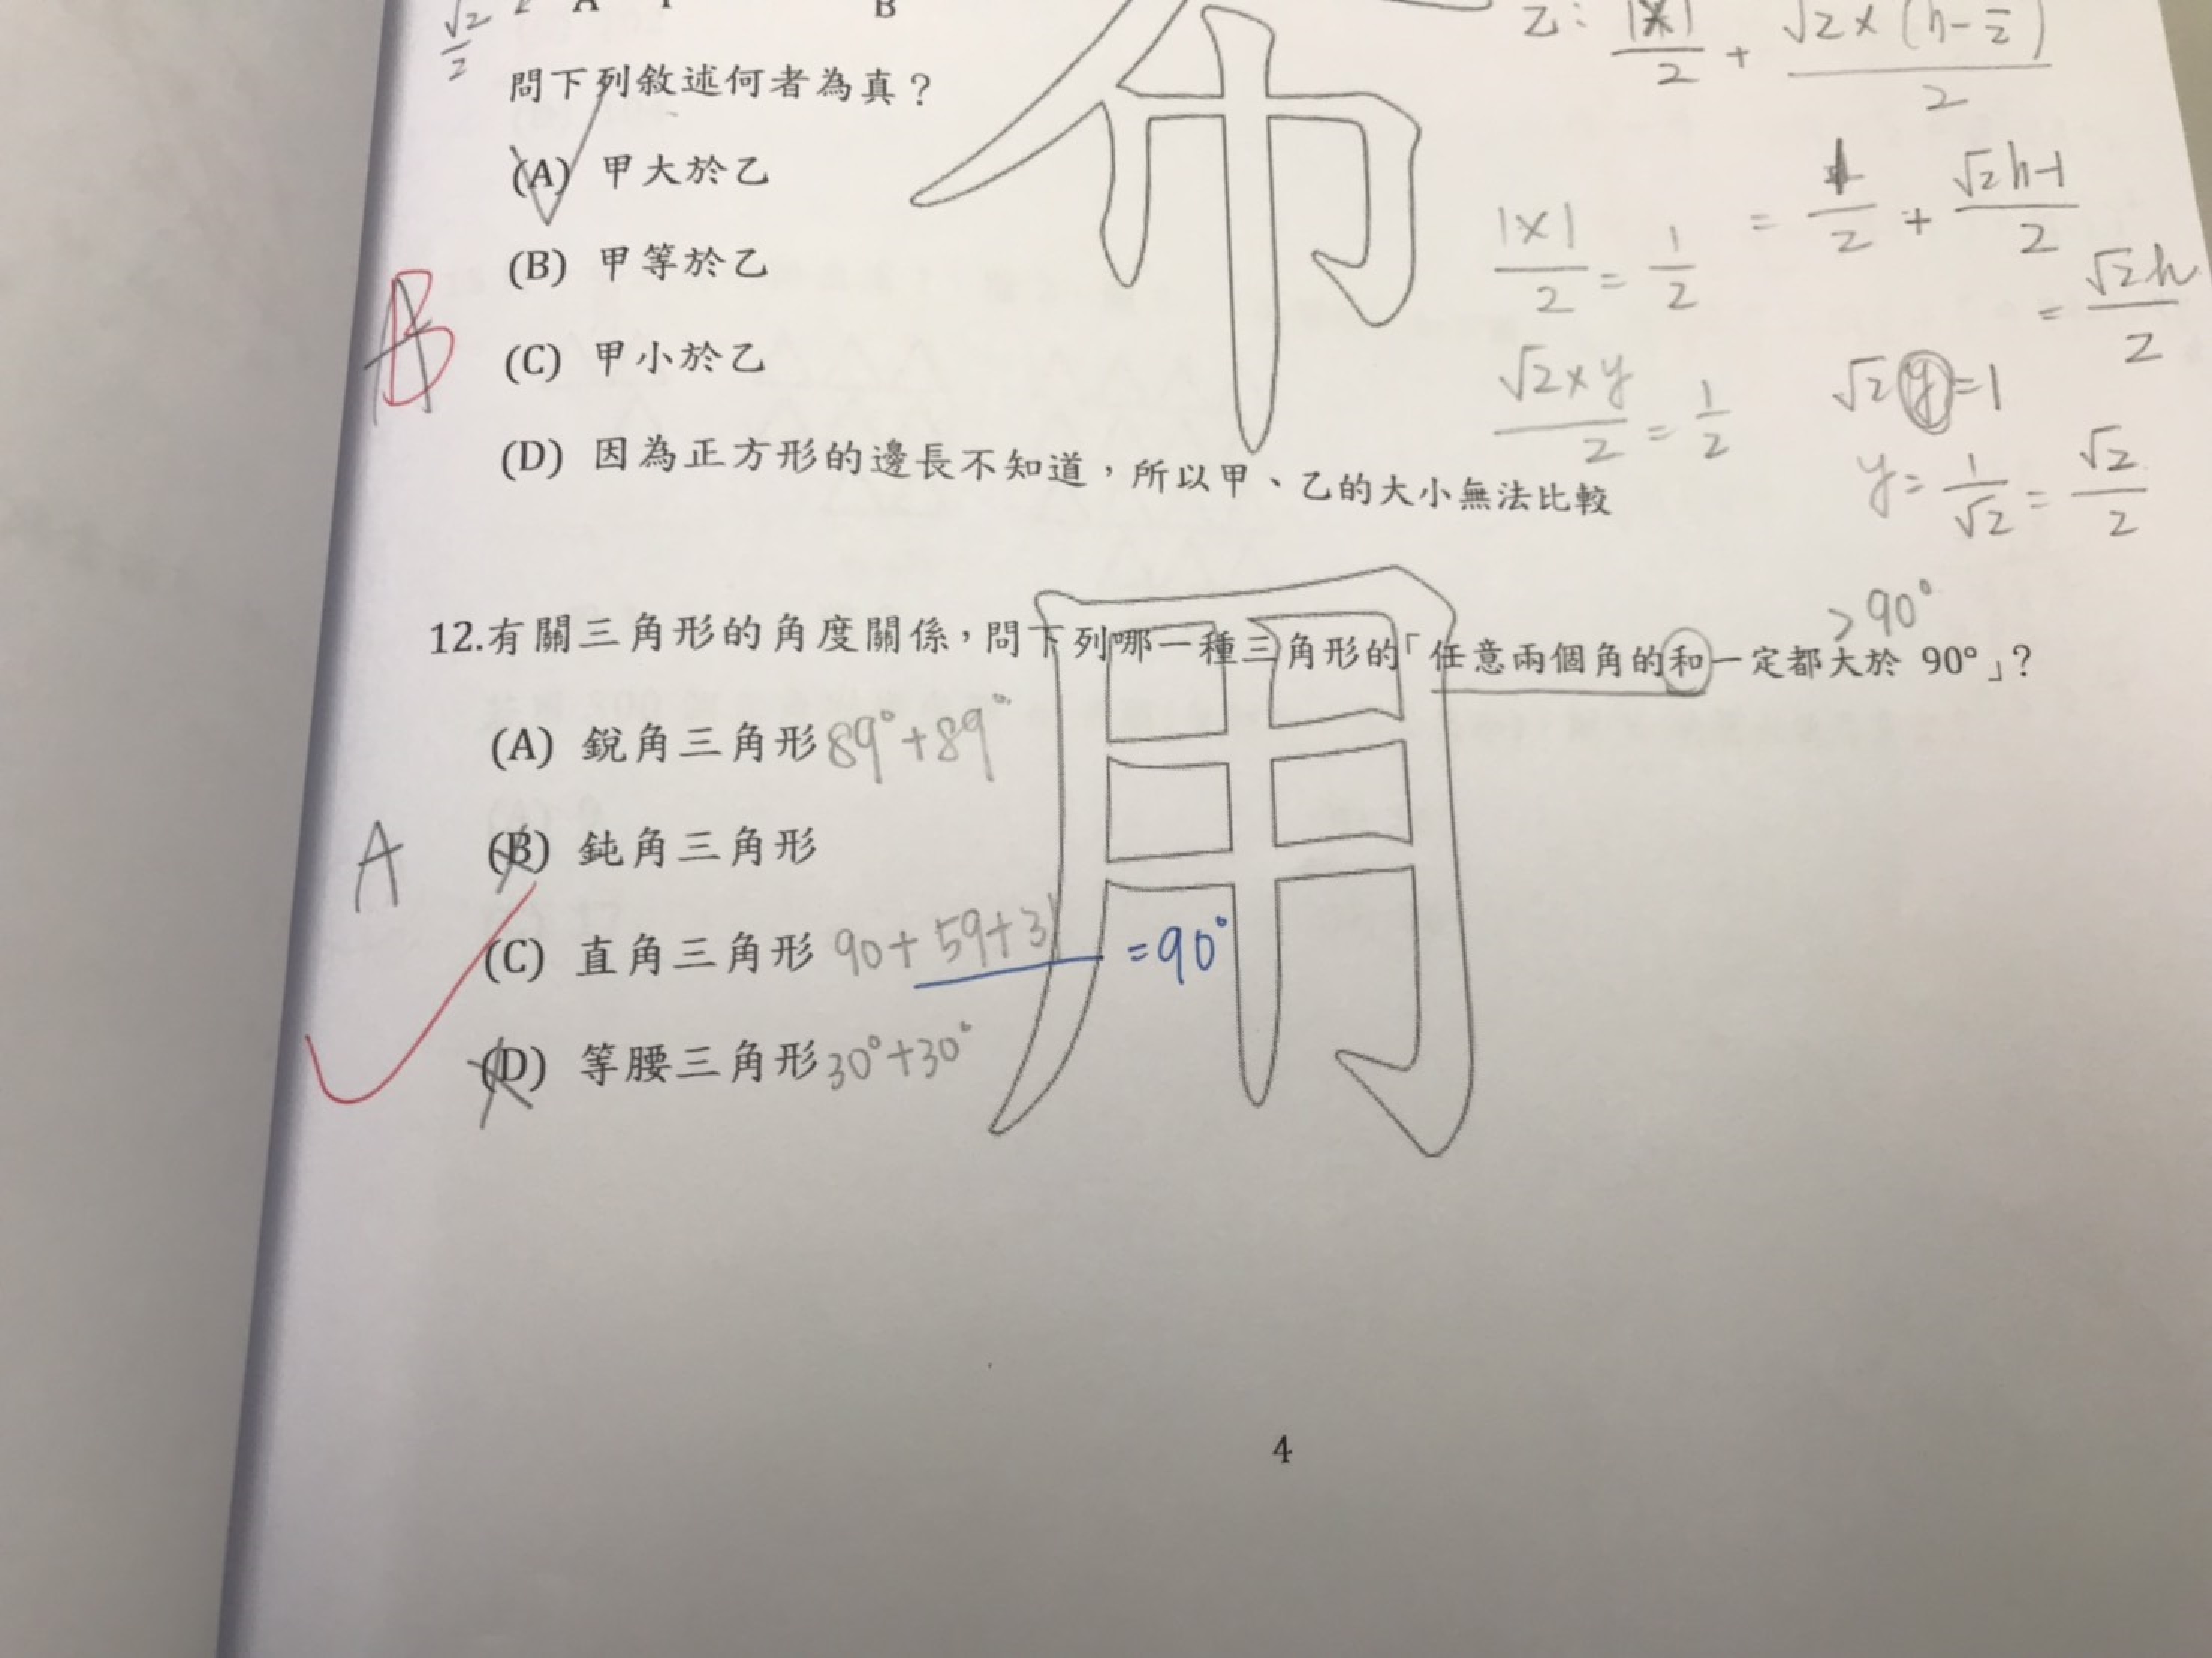 √2/2 A B
乙: 1×1/2 + √2×(h-
問下列敘述何者為真？
(A) 甲大於乙
= 1/2 + √2h-1/2
(B) 甲等於乙
1×1/2 = 1/2
= √2h/2
B
A
(C) 甲小於乙
√2×y/2 = 1/2
√2y=1
(D) 因為正方形的邊長不知道，所以甲、乙的大小無法比較
y= 1/√2 = √2/2
>90°
12.有關三角形的角度關係，問下列哪一種三角形的「任意兩個角的和一定都大於 90°」？
(A) 銳角三角形 89°+89°
A
(B) 鈍角三角形
(C) 直角三角形 90+59+31 =90°
(D) 等腰三角形 30°+30°
布
用
4